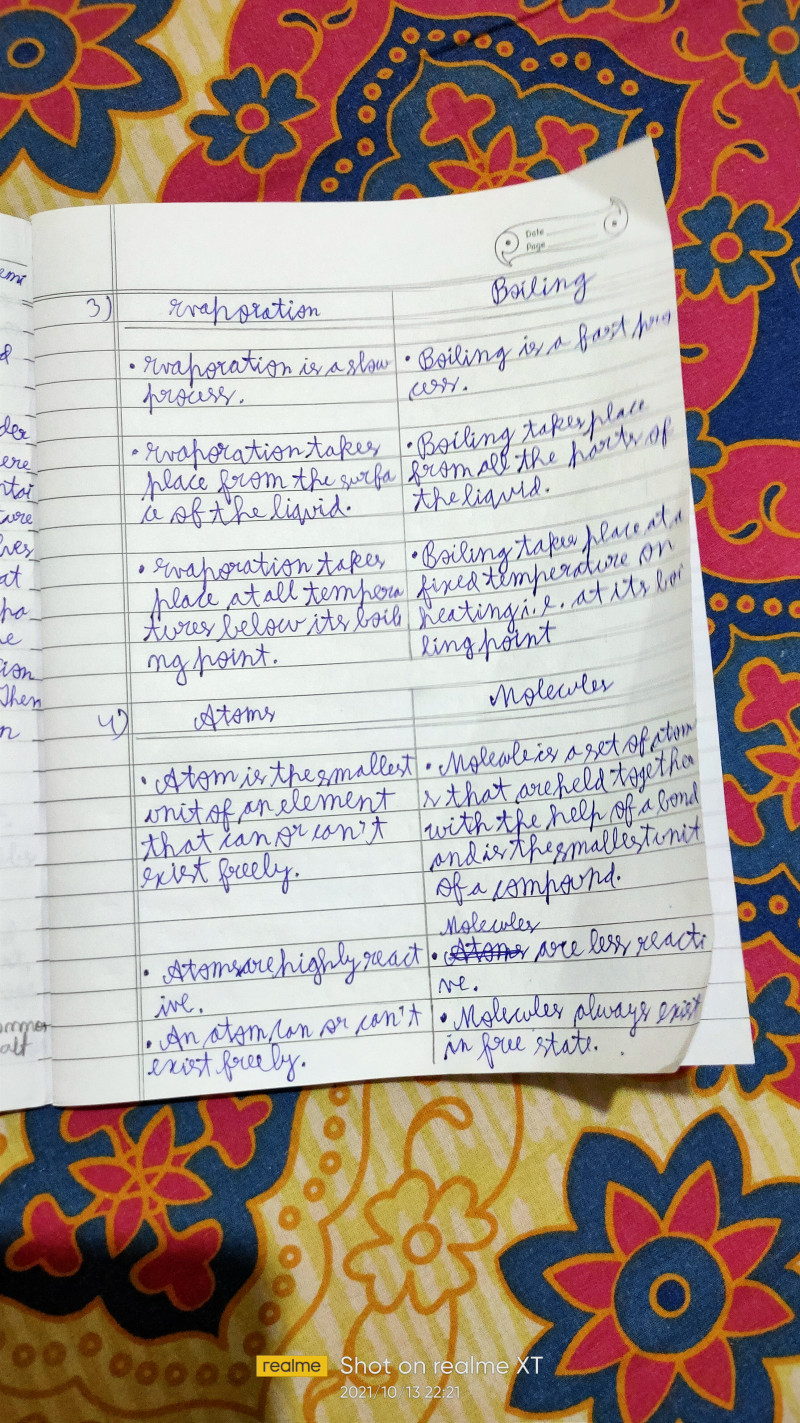 Date
Page
3) Evaporation
Boiling
• Evaporation is a slow
process.
• Boiling is a fast pro
cess.
• Evaporation takes
place from the surfa
ce of the liquid.
• Boiling takes place
from all the parts of
the liquid.
• Evaporation takes
place at all tempera
tures below its boili
ng point.
• Boiling takes place at a
fixed temperature on
heating i.e. at its boi
ling point
4) Atoms
Molecules
• Atom is the smallest
unit of an element
that can or can't
exist freely.
• Molecule is a set of atom
s that are held together
with the help of a bond
and is the smallest unit
of a compound.
• Atoms are highly react
ive.
Molecules
• Atoms are less reacti
ve.
• An atom can or can't
exist freely.
• Molecules always exist
in free state.
der
ere
ntai
ture
at
pa
ion
Then
n
realme Shot on realme XT
2021/10/13 22:21